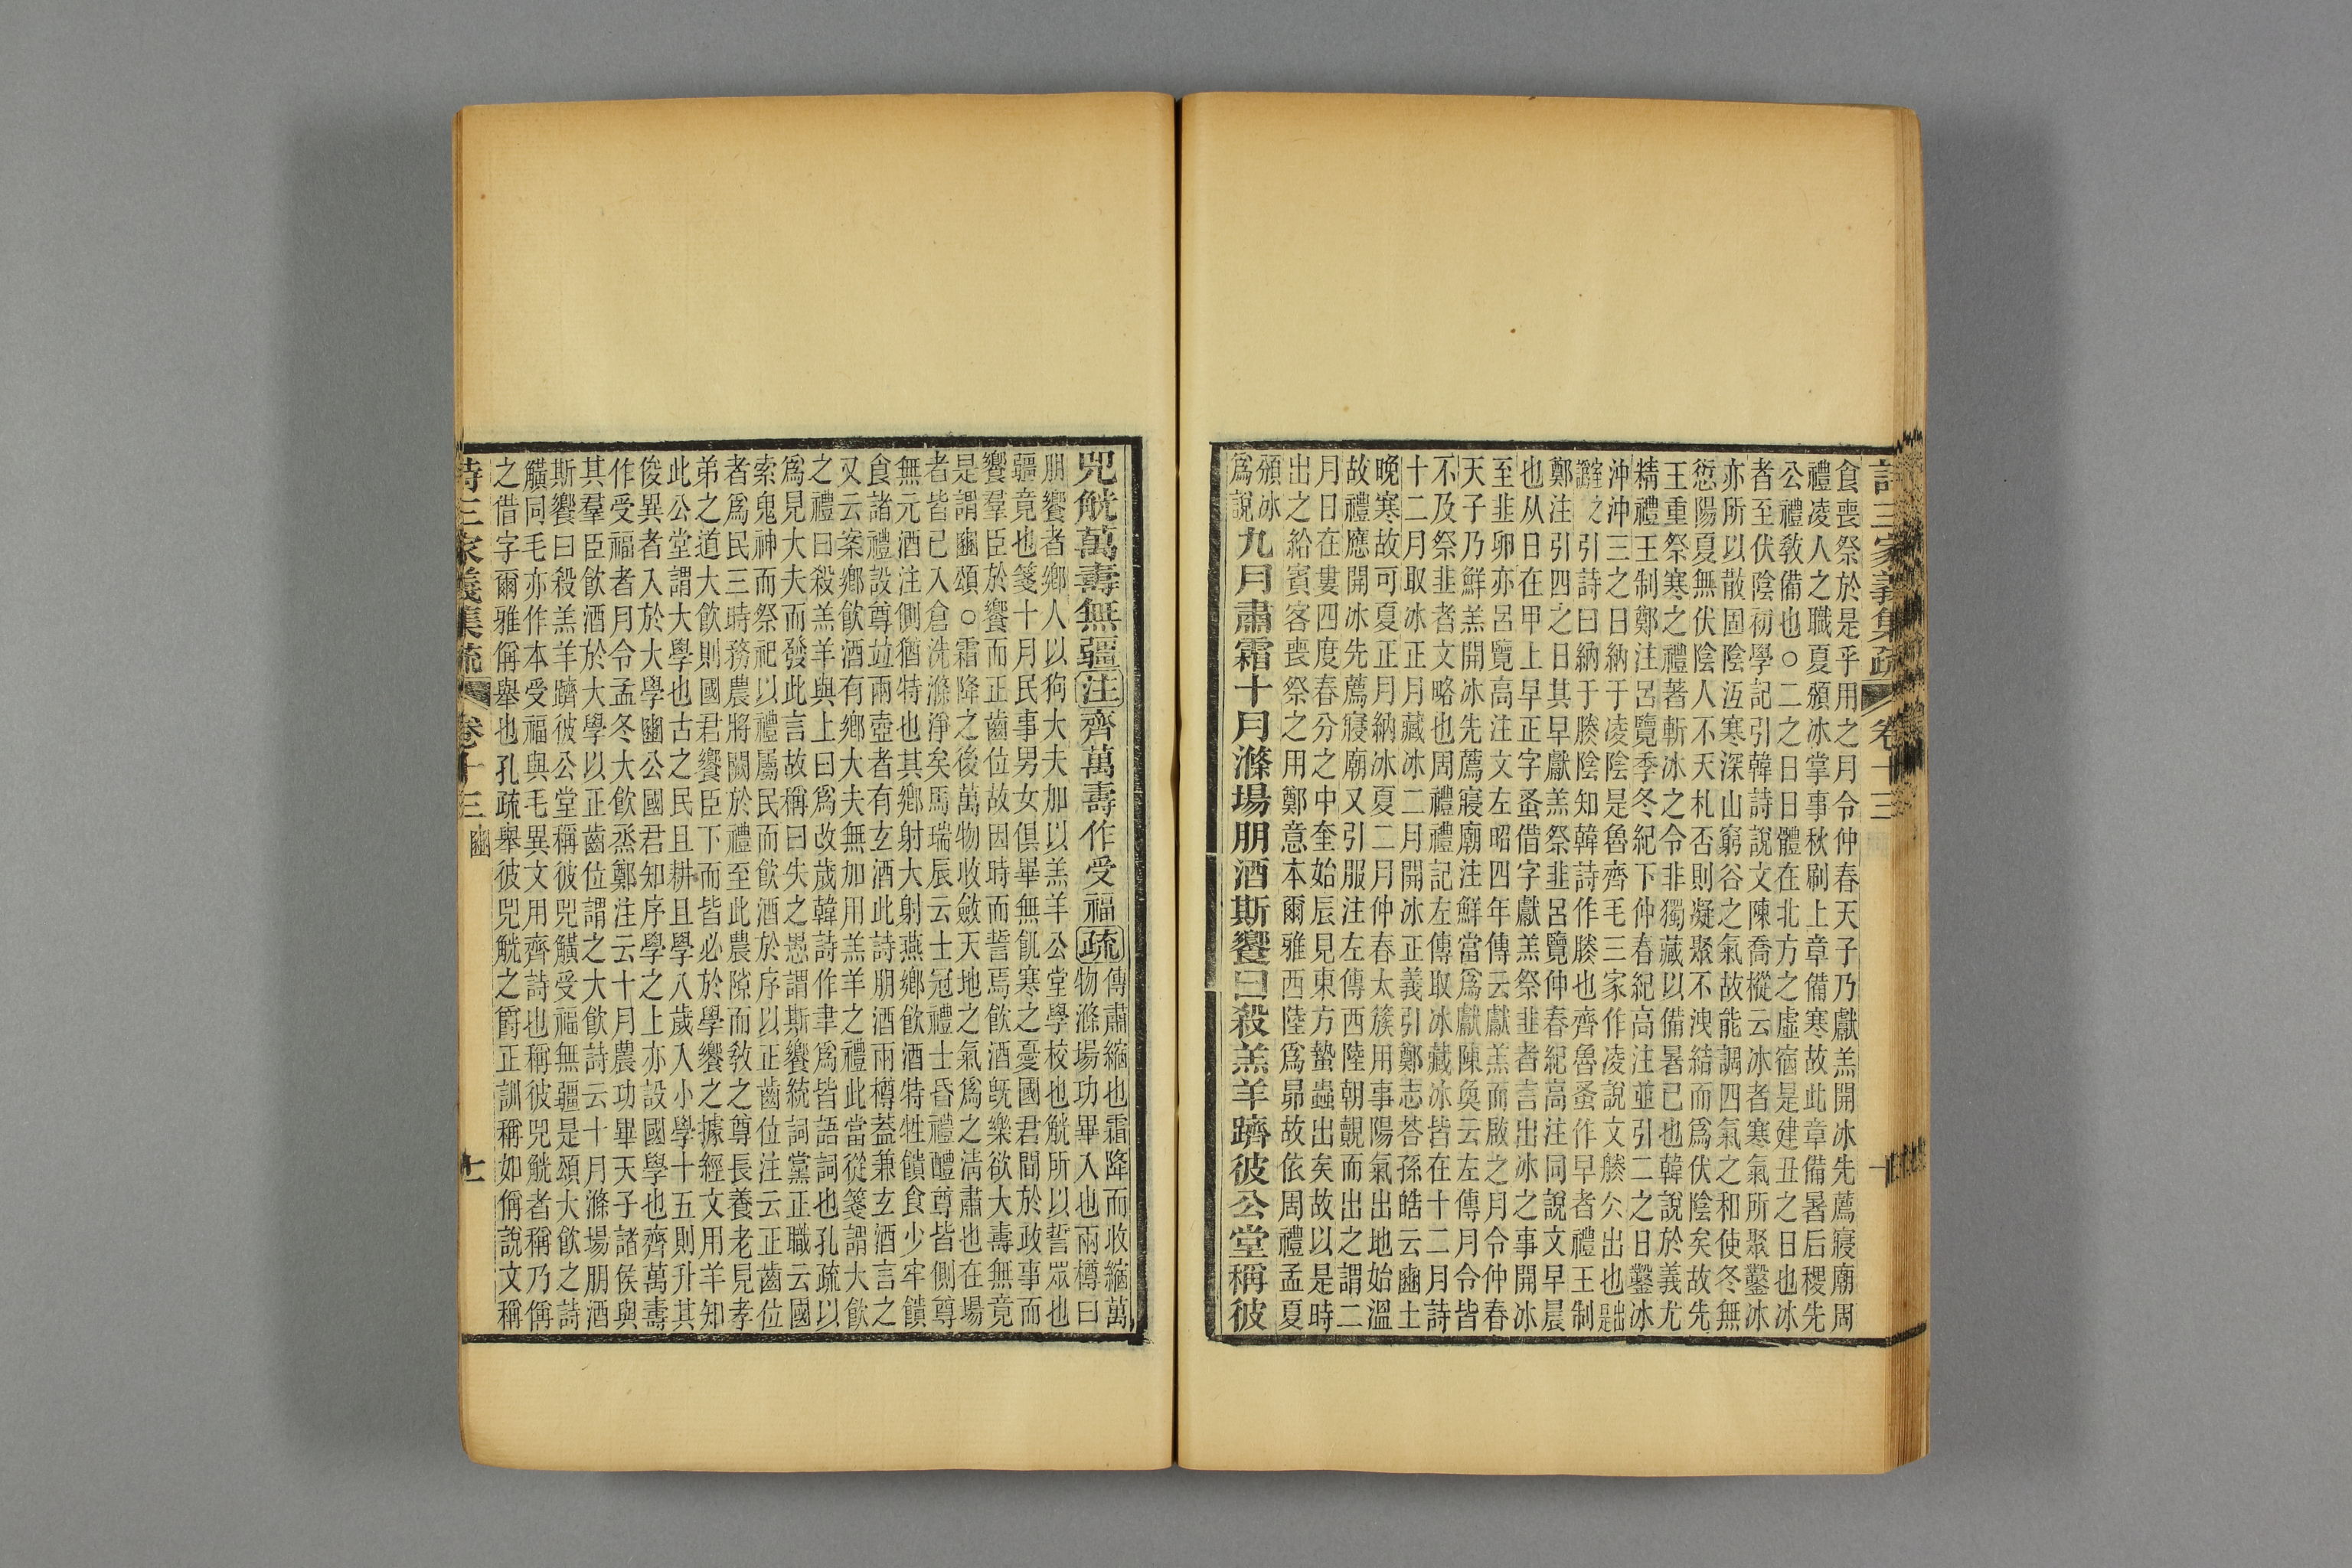 詩三家義集疏 卷十三
食喪祭於是乎用之月令仲春天子乃獻羔開冰先薦寢廟周
禮凌人之職夏頒冰掌事秋刷上章備寒故此章備暑后稷先
公禮敎備也○二之日日體在北方之虛宿是建丑之日也冰
者至伏陰初學記引韓詩說文陳喬樅云冰者寒氣所聚鑿冰
亦所以散固陰沍寒深山窮谷之氣故能調四氣之和使冬無
愆陽夏無伏陰人不夭札否則凝聚不洩結而爲伏陰矣故先
王重祭寒之禮著斬冰之令非獨藏以備暑已也韓說於義尤
精禮王制鄭注呂覽季冬紀下仲春紀高注並引二之日鑿冰
沖沖三之日納于凌陰是魯齊毛三家作凌說文㬺仌出也
之引詩曰納于㬺陰知韓詩作㬺也齊魯蚤作早者禮王制
鄭注引四之日其早獻羔祭韭呂覽仲春紀高注同說文早晨
也从日在甲上早正字蚤借字獻羔祭韭者言出冰之事開冰
至韭卵亦呂覽高注文左昭四年傳云獻羔而啟之月令仲春
天子乃鮮羔開冰先薦寢廟注鮮當爲獻陳奐云左傳月令皆
不及祭韭者文略也周禮禮記左傳取冰藏冰皆在十二月詩
十二月取冰正月藏冰二月開冰正義引鄭志荅孫皓云豳土
晚寒故可夏正月納冰夏二月仲春太簇用事陽氣出地始溫
故禮應開冰先薦寢廟又引服注左傳西陸朝覿而出之謂二
月日在婁四度春分之中奎始辰見東方蟄蟲出矣故以是時
出之給賓客喪祭之用鄭意本爾雅西陸爲昴故依周禮孟夏
頒冰
爲說九月肅霜十月滌場朋酒斯饗曰殺羔羊躋彼公堂稱彼
兕觥萬壽無疆注齊萬壽作受福疏傳肅縮也霜降而收縮萬
物滌場功畢入也兩樽曰
朋饗者鄉人以狗大夫加以羔羊公堂學校也觥所以誓眾也
疆竟也箋十月民事男女俱畢無飢寒之憂國君閒於政事而
饗羣臣於饗而正齒位故因時而誓焉飲酒旣樂欲大壽無竟
是謂豳頌○霜降之後萬物收斂天地之氣爲之淸肅也在場
者皆已入倉洗滌淨矣馬瑞辰云士冠禮士昏禮醴尊皆側尊
無元酒注側猶特也其鄉射大射燕鄉飲酒特牲饋食少牢饋
食諸禮設尊竝兩壺者有玄酒此詩朋酒兩樽蓋兼玄酒言之
又云案鄉飲酒有鄉大夫無加用羔羊之禮此當從箋謂大飲
之禮曰殺羔羊與上曰爲改歲韓詩作聿爲皆語詞也孔疏以
爲見大夫而發此言故稱曰失之愚謂斯饗統詞黨正職云國
索鬼神而祭祀以禮屬民而飲酒於序以正齒位注云正齒位
者爲民三時務農將闕於禮至此農隙而敎之尊長養老見孝
弟之道大飲則國君饗臣下而皆必於學饗之據經文用羊知
此公堂謂大學也古之民且耕且學八歲入小學十五則升其
俊異者入於大學豳公國君知序學之上亦設國學也齊萬壽
作受福者月令孟冬大飲烝鄭注云十月農功畢天子諸侯與
其羣臣飲酒於大學以正齒位謂之大飲詩云十月滌場朋酒
斯饗曰殺羔羊躋彼公堂稱彼兕觵受福無疆是頌大飲之詩
觵同毛亦作本受福與毛異文用齊詩也稱彼兕觥者稱乃偁
之借字爾雅偁舉也孔疏舉彼兕觥之爵正訓稱如偁說文稱
詩三家義集疏 卷十三 豳 七